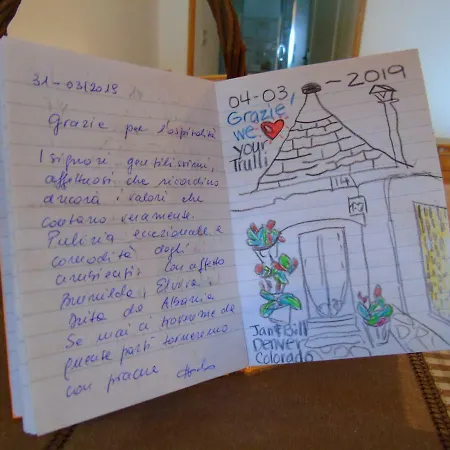 31-03/2019
Grazie per l'ospitalità
I signori gentilissimi,
affettuosi che ricordino
ancora i valori che
contano veramente.
Pulizia eccezionale e
comodità degli
ambienti. Con affetto
Brunilda, Elvira,
Drita da Albania
Se mai ci troviamo da
queste parti torneremo
con piacere
04-03-2019
Grazie,
we ❤
your
Trulli
114
Jan & Bill
Denver
Colorado